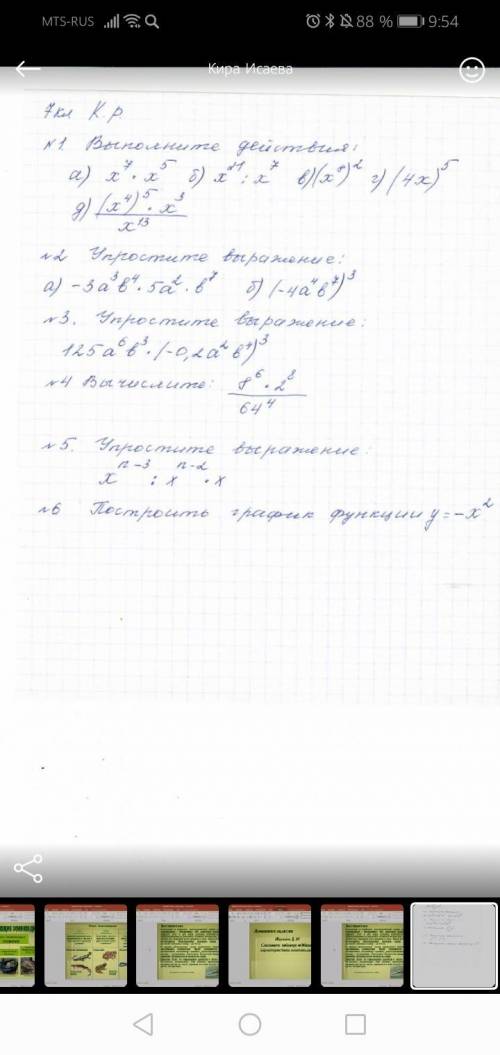 MTS-RUS 88 % 9:54
Кира Исаева
7кл К.р.
№1 Выполните действия:
а) x⁷ · x⁵ б) x²¹ : x⁷ в) (x⁷)² г) (4x)⁵
д) (x⁴)⁵ · x³
x¹³
№2 Упростите выражение:
а) -3a³b⁴ · 5a² · b⁷ б) (-4a⁴b⁷)³
№3. Упростите выражение:
125a⁶b³ · (-0,2a²b⁴)³
№4 Вычислите: 8⁶ · 2⁸
64⁴
№5. Упростите выражение:
xⁿ⁻³ : xⁿ⁻² · x
№6 Построить график функции y = -x²